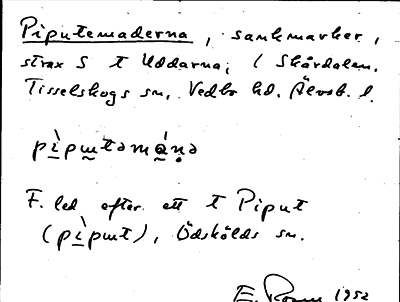 Piputemaderna, sankmarker,
strax S t Uddarna; i Skårdalen.
Tisselskogs sn, Vedbo hd. Älvsb. l.
pìpɯtəmánə
F. led efter ett t Piput
(pìpɯt), Ödskölds sn.
E. Rosen 1952